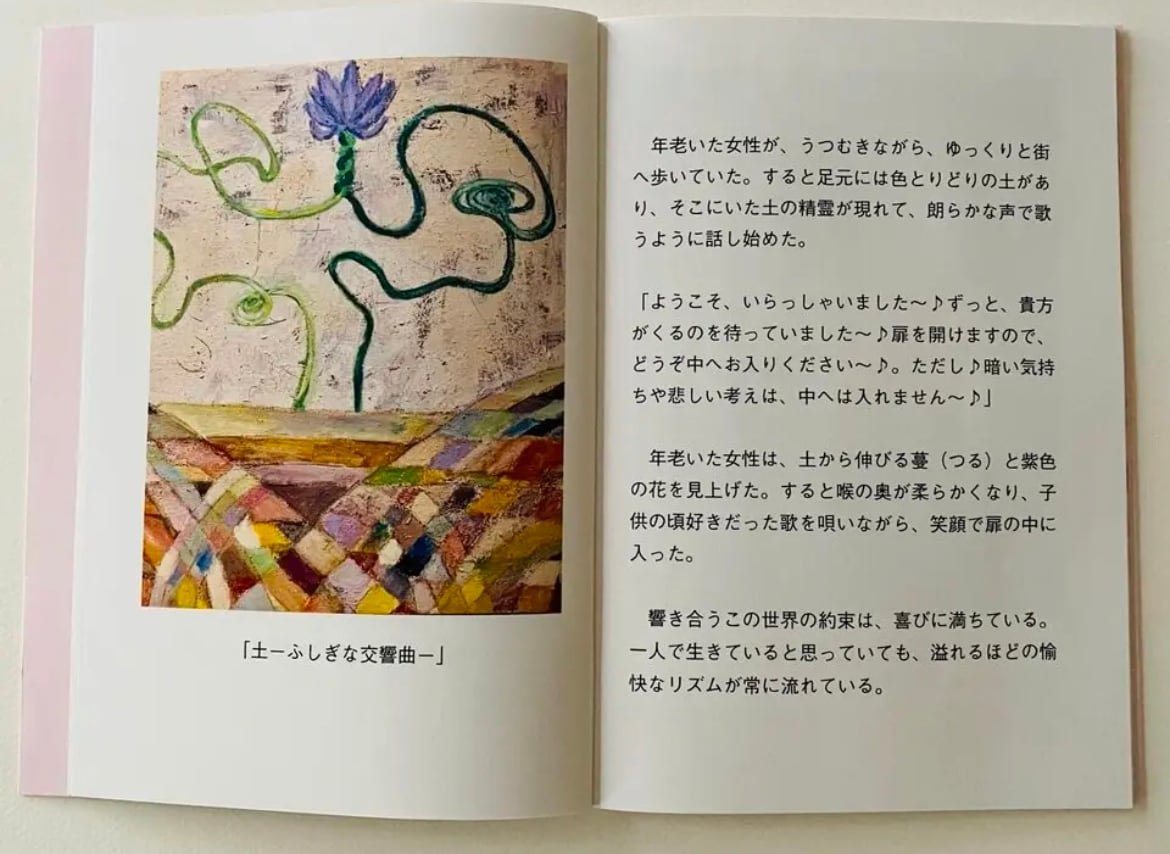 「土ーふしぎな交響曲ー」
年老いた女性が、うつむきながら、ゆっくりと街
へ歩いていた。すると足元には色とりどりの土があ
り、そこにいた土の精霊が現れて、朗らかな声で歌
うように話し始めた。
「ようこそ、いらっしゃいました〜♪ずっと、貴方
がくるのを待っていました〜♪扉を開けますので、
どうぞ中へお入りください〜♪。ただし♪暗い気持
ちや悲しい考えは、中へは入れません〜♪」
年老いた女性は、土から伸びる蔓（つる）と紫色
の花を見上げた。すると喉の奥が柔らかくなり、子
供の頃好きだった歌を唄いながら、笑顔で扉の中に
入った。
響き合うこの世界の約束は、喜びに満ちている。
一人で生きていると思っていても、溢れるほどの愉
快なリズムが常に流れている。